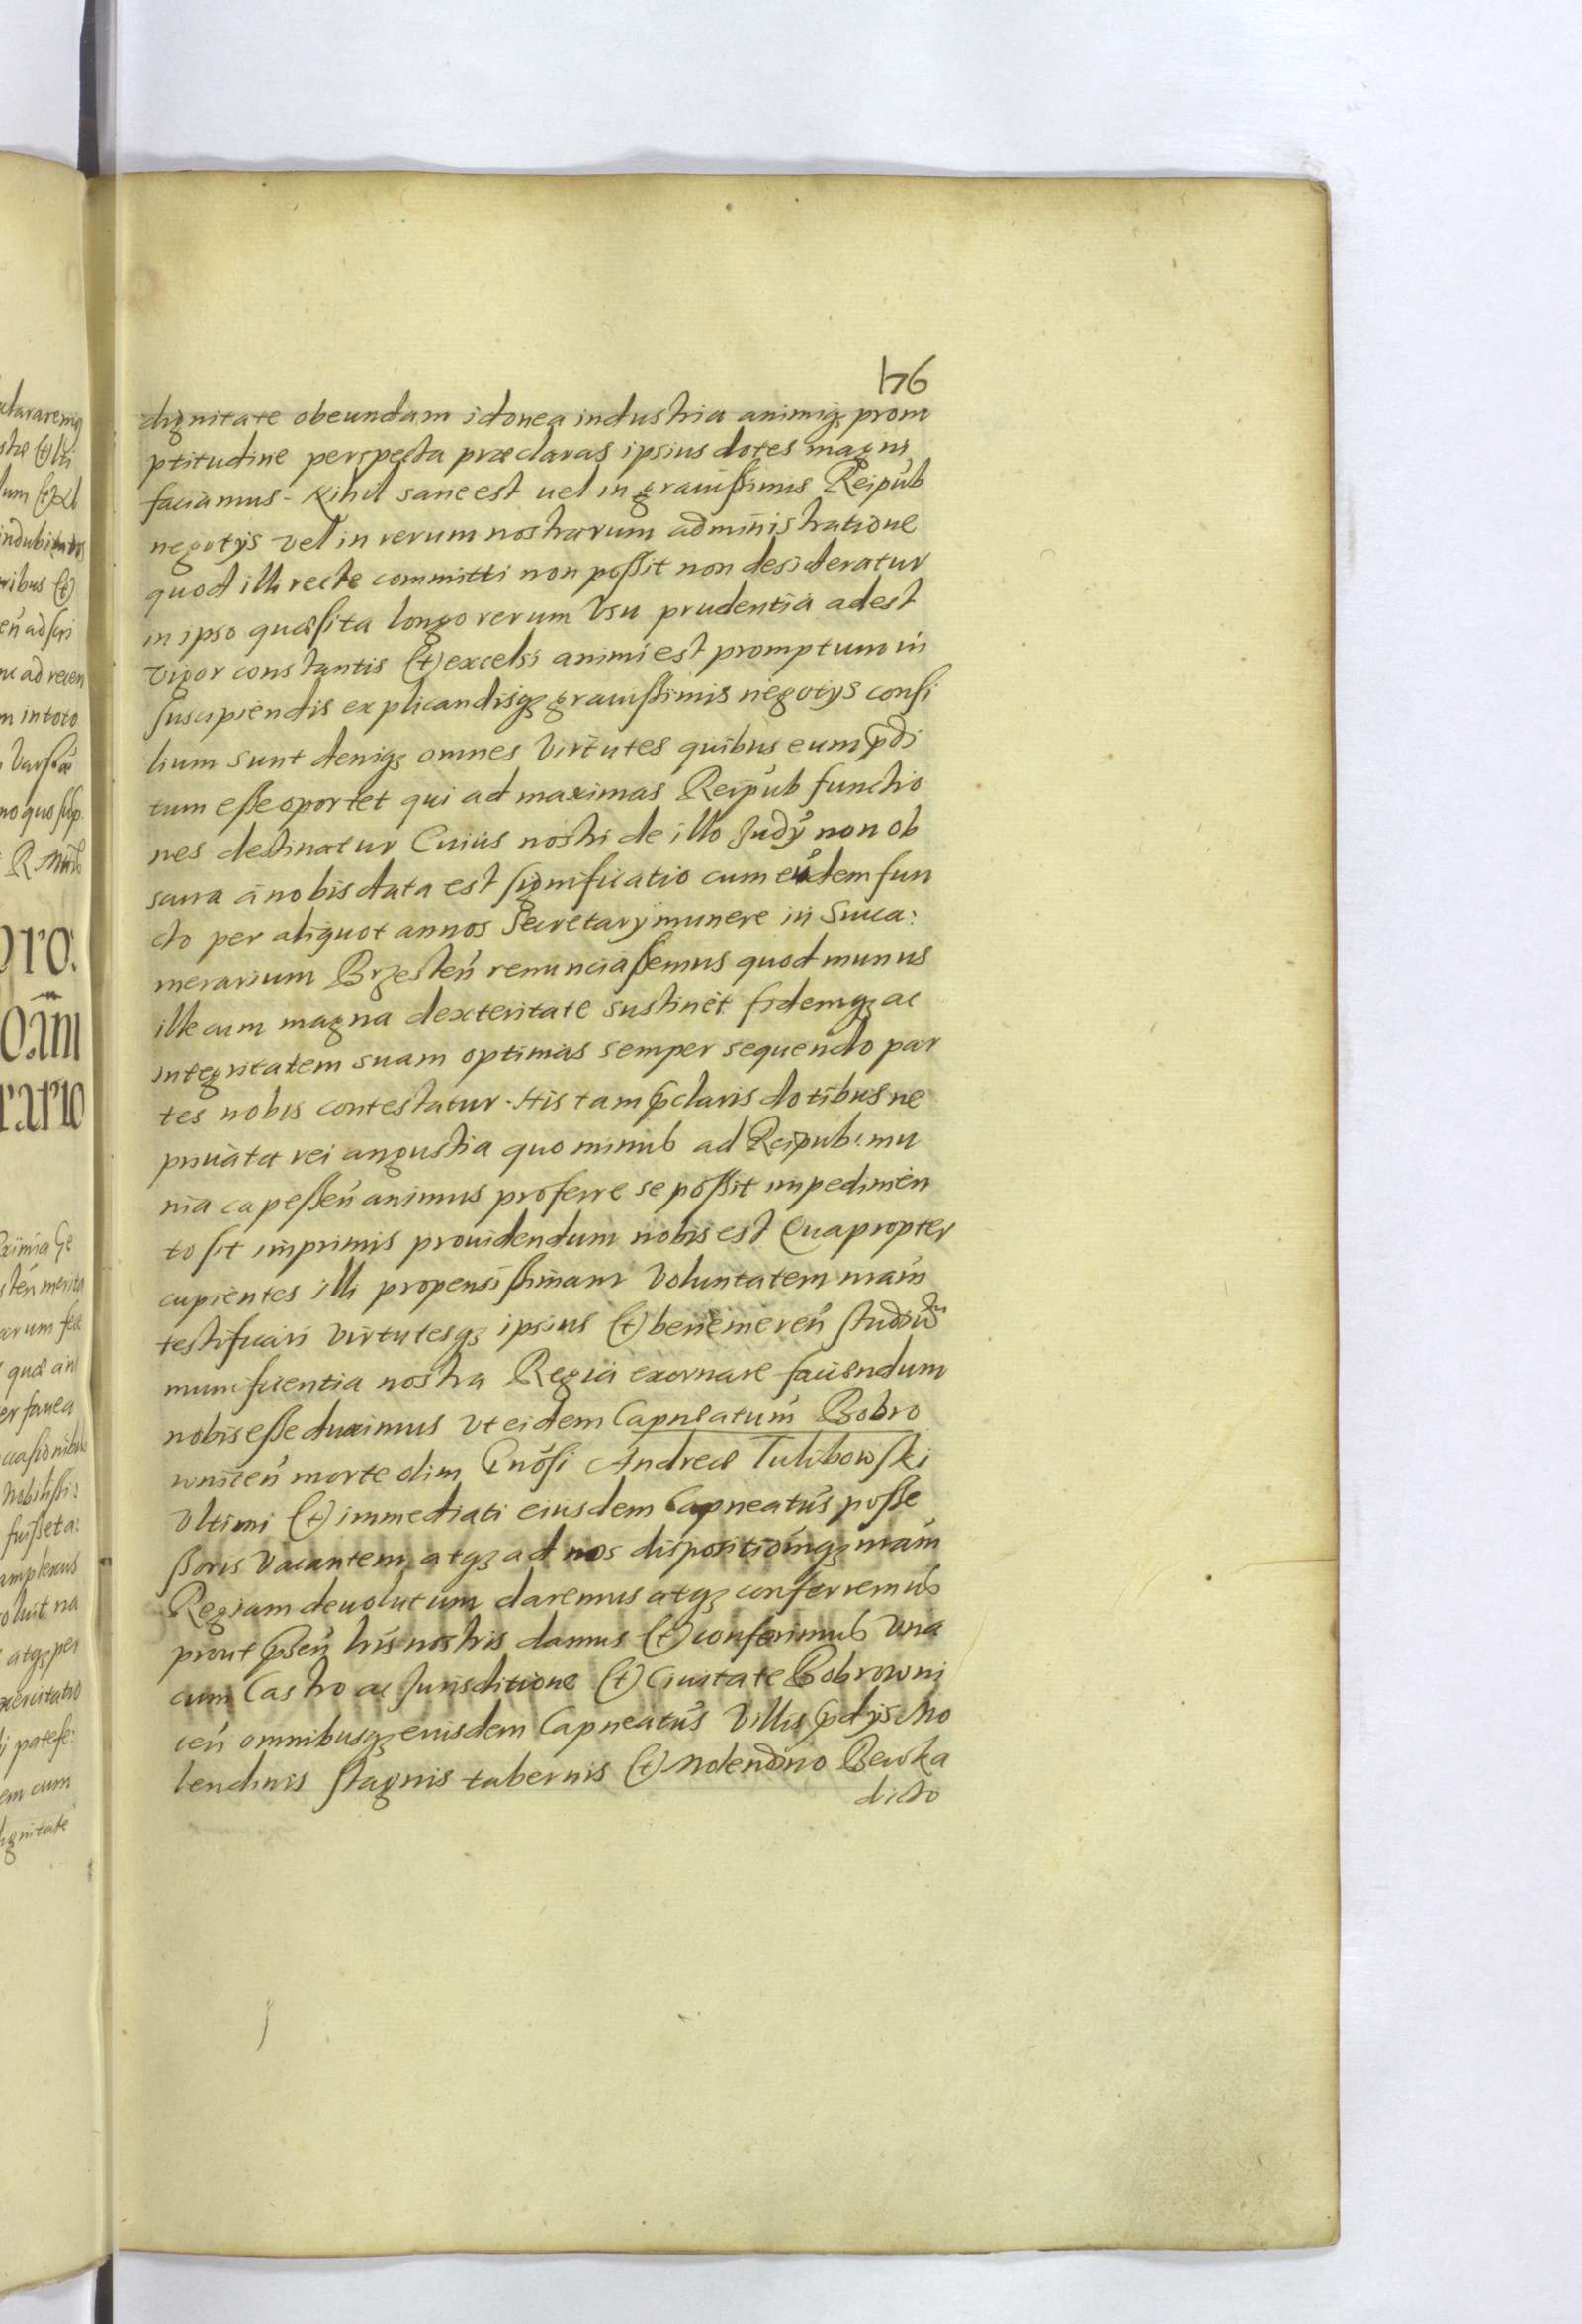 176
dignitate obeundam idonea industria animiqȝ prom
ptitudine perspecta præclaras ipsius dotes magni
faciamus. Nihil sane est uel in grauißimis Reipub
negotÿs vel in rerum nostrarum administratione
quod illi recte committi non poßit non desideratur
in ipso quæsita longo rerum Vsu prudentia adest
vigor constantis (et) excelsi animi est promptum in
suscipiendis explicandisqȝ grauißimis negotÿs consi
lium sunt deniqȝ omnes Virtutes quibus eum p̄di
tum eße oportet qui ad maximas Reipub functio
nes destinatur Cuius nostri de illo Judÿ non ob
scura a nobis data est significatio cum eúdem fun
cto per aliquot annos Secretarÿ munere in Succa:
merarium Brzesteń renunciaßemus quod munus
ille cum magna dexteritate sustinet fidemqȝ ac
integritatem suam optimas semper sequendo par
tes nobis contestatur. His tam p̄claris dotibus ne
priuatæ rei angustia quo minus ad Reipub: mu
nia capeßeń animus proferre se poßit impedimen
to sit imprimis prouidendum nobis est Quapropter
cupientes illi propensißimam Voluntatem nr̄am
testificari virtutesqȝ ipsius (et) benemereń studium
munificentia nostra Regia exornare faciendum
nobis eße duximus Vt eidem Capneatum Bobro
wniceń morte olim Gnōsi Andreæ Tulibowski
Vltimi (et) immediati eiusdem Capneatus poße
ßoris Vacantem atqȝ ad nos dispositiōmqȝ nr̄am
Regiam deuolutum daremus atqȝ conferremus
prout p̄seń lr̄is nostris damus (et) conferimus Vna
cum Castro ac Jurisditione (et) Ciuitate Bobrowni
ceń omnibusqȝ eiusdem Capneatus Villis p̄dÿs Mo
lendinis stagnis tabernis (et) Molendino
dicto